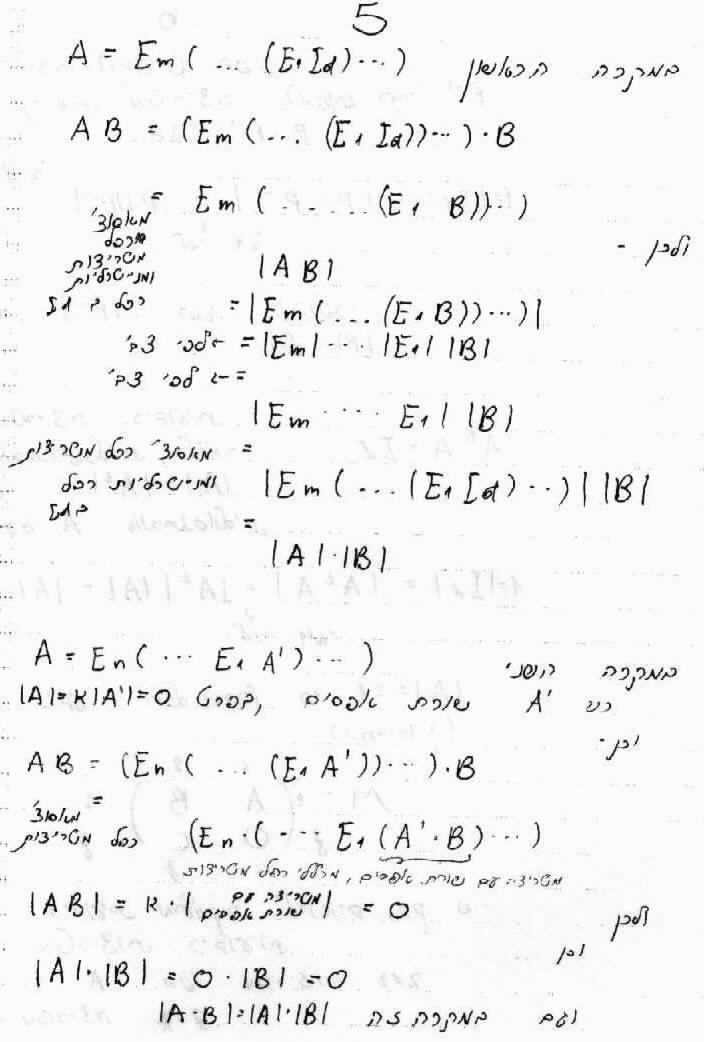 5
במקרה הראשון A = Em( ... (E1 Id) ...)
AB = (Em(... (E1 Id)) ...) · B
= Em( ... ... (E1 B)) ...)
מאסוצ'
כפל
מטריצות
ולכן -
|AB|
= |Em( ... (E1 B)) ...)|
= |Em| ... |E1| |B| לפי צב'
= לפי צב'
|Em ... E1| |B|
= מאסוצ' כפל מטריצות
|Em( ... (E1 Id) ...)| |B|
=
|A| · |B|
במקרה השני A = En( ... E1 A') ...)
A' שורת אפסים, בפרט |A| = א|A'| = 0
וכן -
AB = (En( ... (E1 A')) ...) · B
= מאסוצ'
כפל מטריצות (En · ( ... E1 (A' · B) ...)
מטריצה עם שורת אפסים, מכללי כפל מטריצות
ולכן |AB| = א · |מטריצה עם שורת אפסים| = 0
וכן
|A| · |B| = 0 · |B| = 0
וגם במקרה זה |A·B| = |A|·|B|